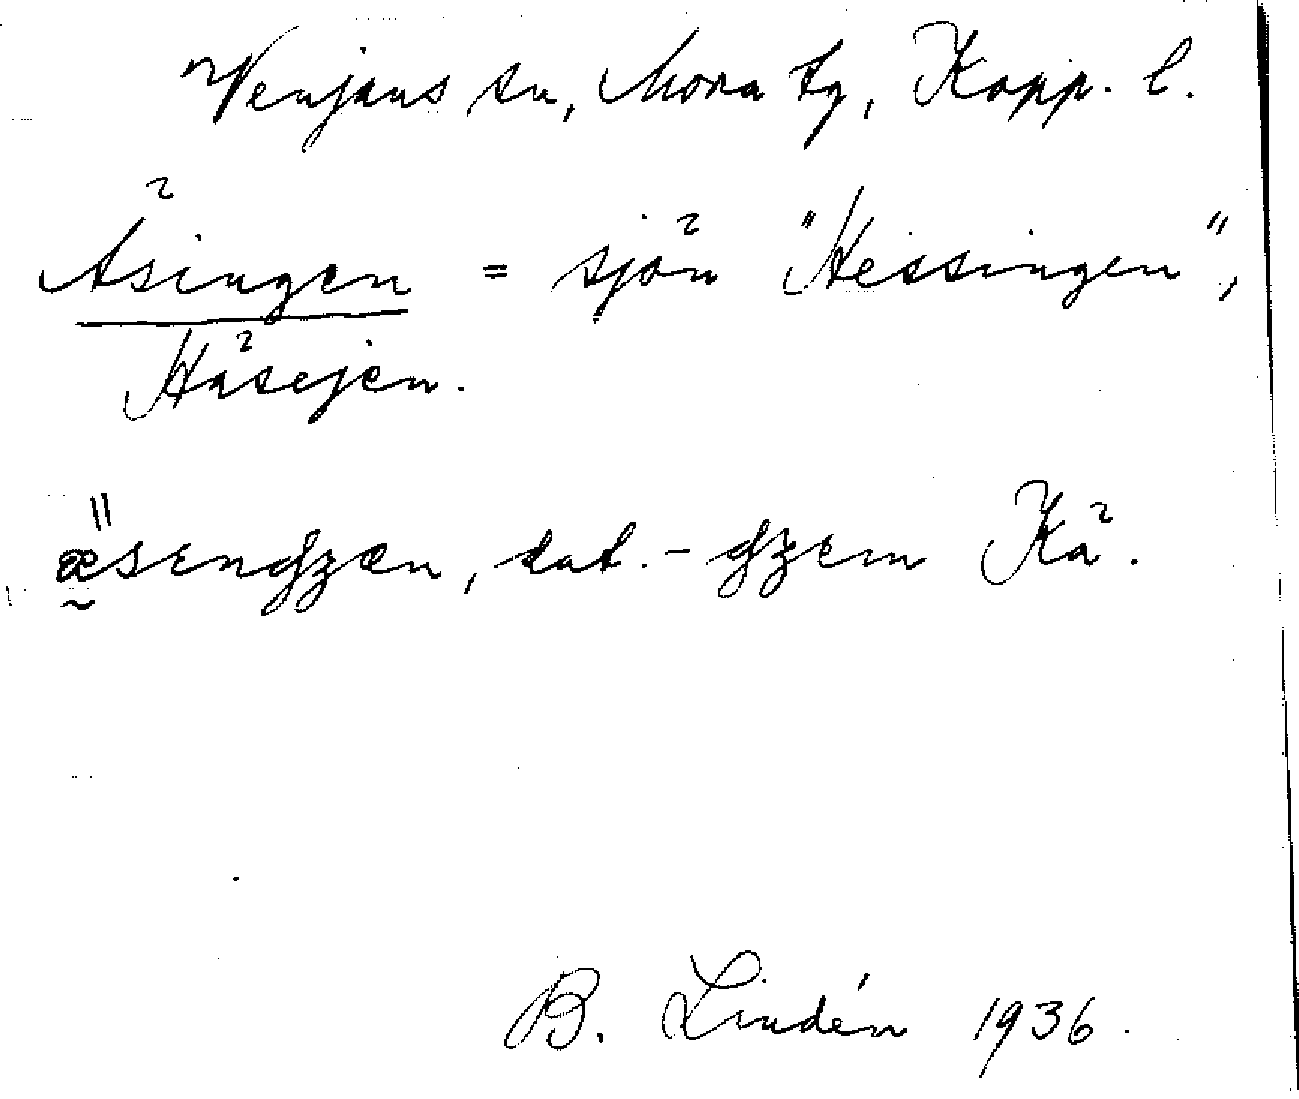 Venjans sn, Mora tg, Kopp. l.
Äsingen = sjön "Hessingen",
Häsejen.
æsendzen, dat. -dzem Kä.
B. Lindén 1936.